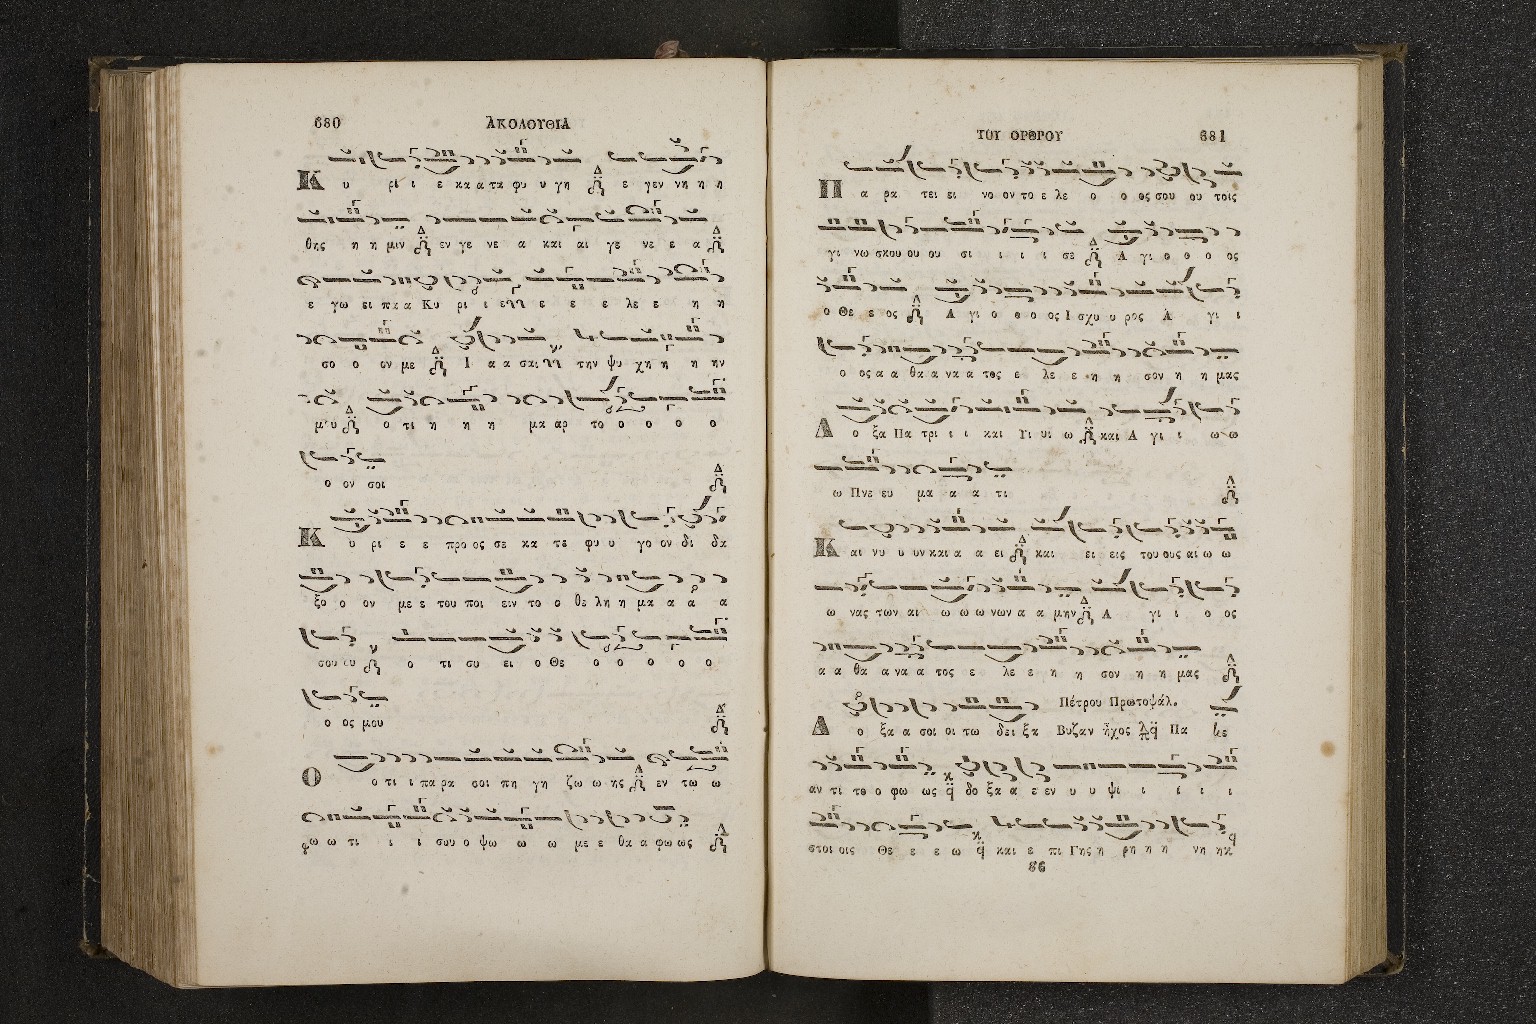 680 ΑΚΟΛΟΥΘΙΑ
Κ υ ρι ι ε κα α τα φυ υ γη ε γεν νη η η
θης η η μιν εν γε νε α και αι γε νε ε α
ε γω ει πα α Κυ ρι ι ε ε ε ε λε ε η η
σο ο ον με Ι α α σαι την ψυ χη η η ην
μου ο τι η η η μα αρ το ο ο ο ο
ο ον σοι
Κ υ ρι ε ε προ ος σε κα τε φυ υ γο ον δι δα
ξο ο ον με ε του ποι ειν το ο θε λη η μα α α α
σου ου ο τι συ ει ο Θε ο ο ο ο ο
ο ος μου
Ο ο τι ι πα ρα σοι πη γη ζω ω ης εν τω ω
φω ω τι ι ι σου ο ψω ω ω με ε θα α φω ως
ΤΟΥ ΟΡΘΡΟΥ 681
Π α ρα τει ει νο ον το ε λε ο ο ος σου ου τοις
γι νω σκου ου ου σι ι ι ι σε Α γι ο ο ο ος
ο Θε ε ος Α γι ο ο ο ος Ι σχυ υ ρος Α γι ι
ο ος α α θα α να α τος ε λε ε η η σον η η μας
Δ ο ξα Πα τρι ι ι και Υι υι ω και Α γι ι ω ω
ω Πνε ευ μα α α τι
Κ αι νυ υ υν και α α ει και ει εις του ους αι ω ω
ω νας των αι ω ω ω νων α α μην Α γι ι ο ος
α α θα α να α τος ε λε ε η η σον η η μας
Πέτρου Πρωτοψάλ.
Δ ο ξα α σοι οι τω δει ξα Βυζαν ἦχος Πα
αν τι το ο φω ως δο ξα α ε εν υ υ ψι ι ι ι ι
στοι οις Θε ε ε ω και ε πι Γης η ρη η η νη
86